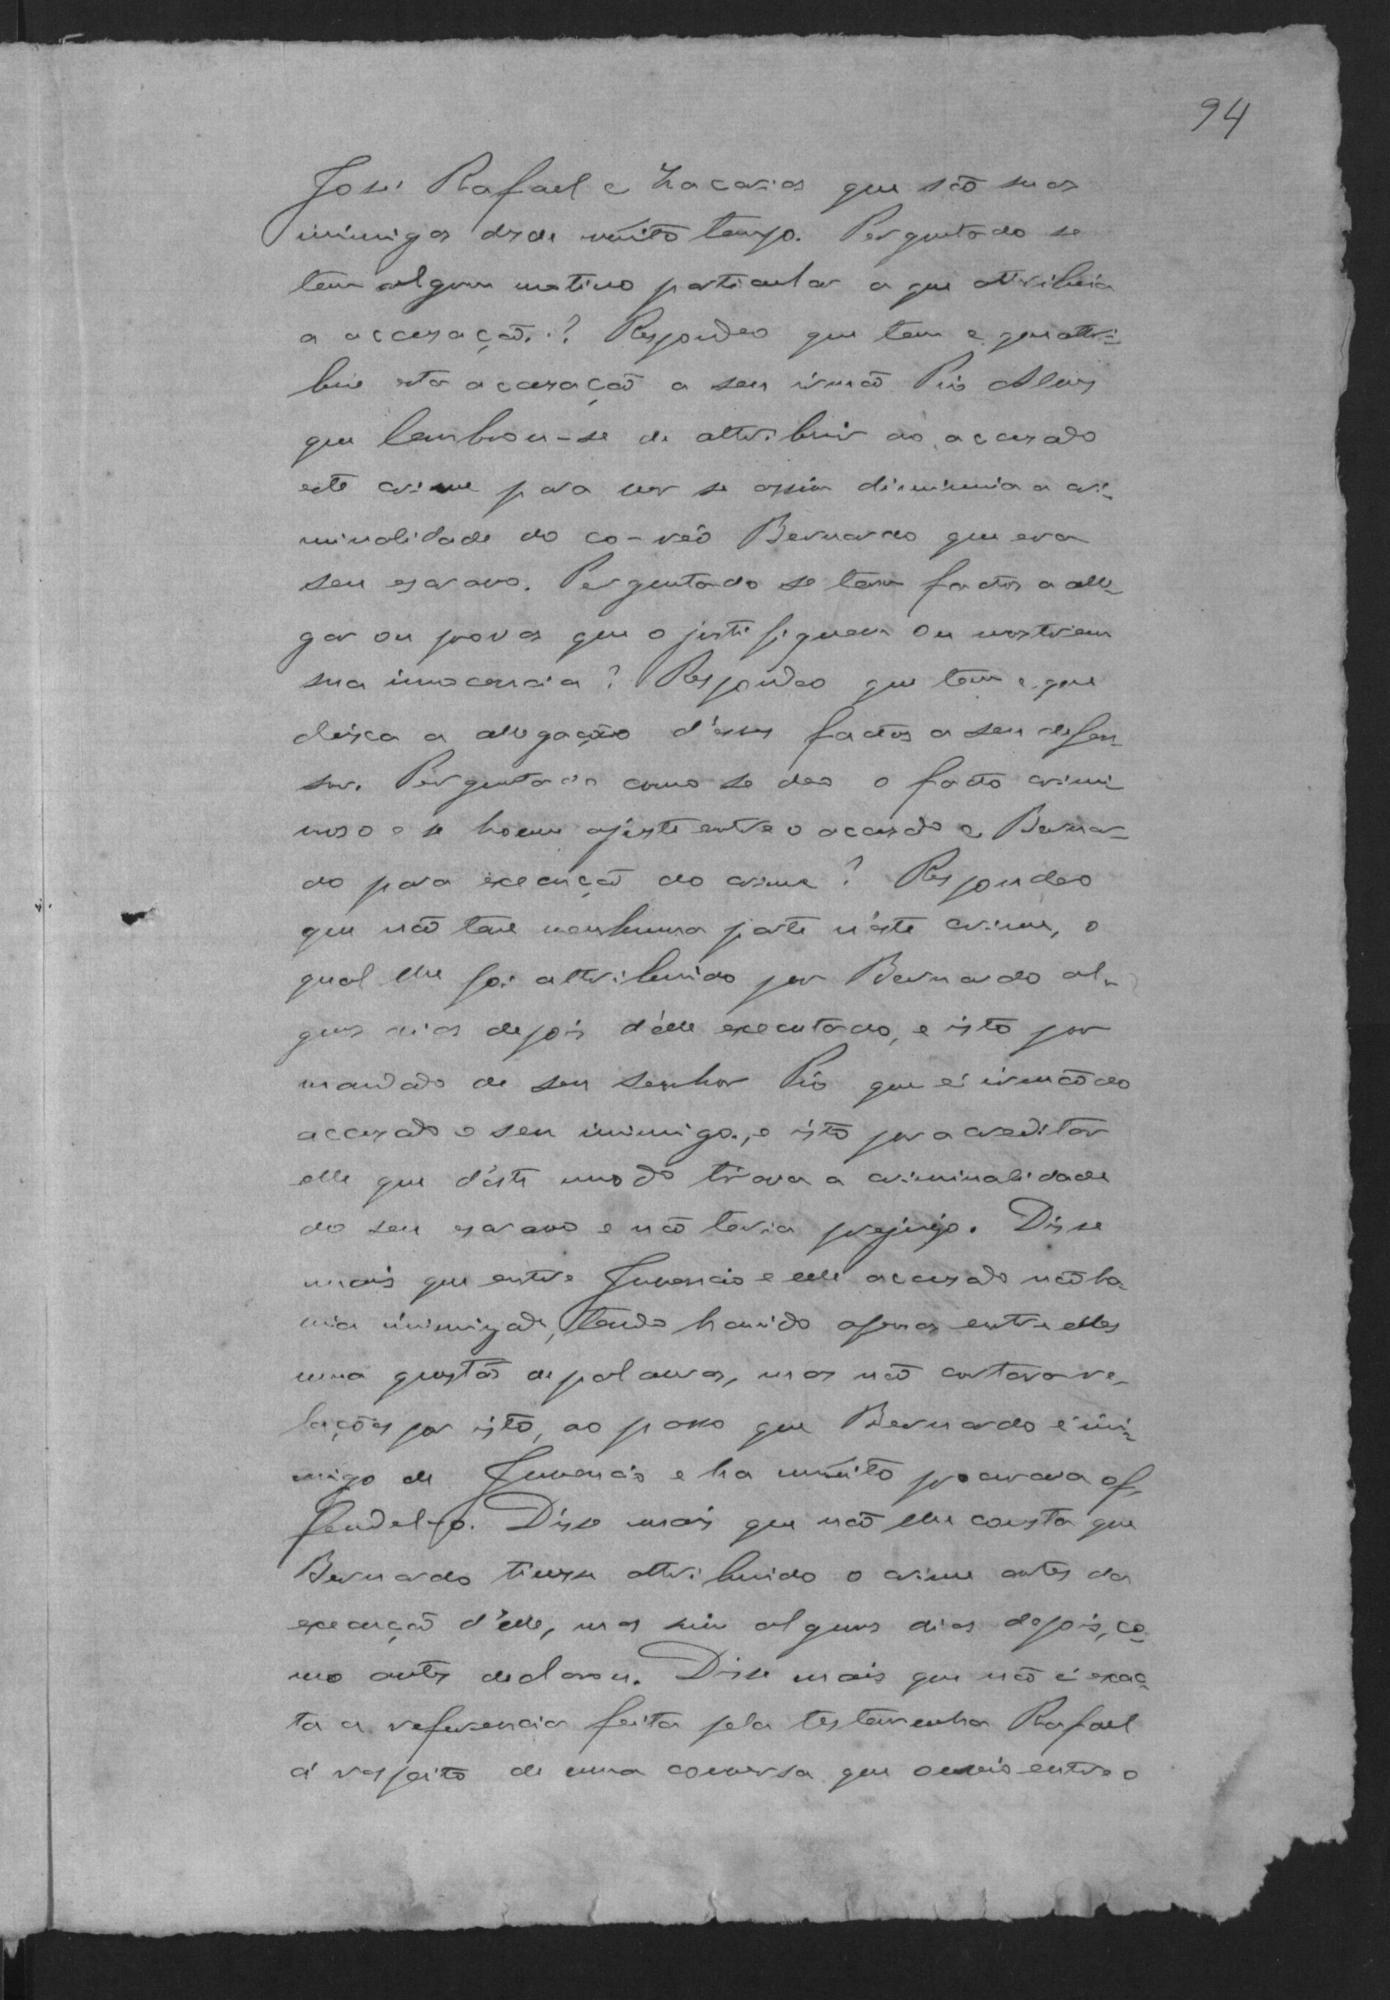 94
José Rafael e Zacarias que são seos
inimigos desde muito tempo. Perguntado se
tem algum motivo particular a que attribúa
a accusação.? Respondeo que tem e que attri-
bue esta accusação a seu irmão Pio Alves
que lembrou-se de attribuir ao accusado
este crime para ver se assim diminuia a cri-
minalidade do co-réo Bernardo que era
seu escravo. Perguntado se tem factos a alle-
gar ou provas que o justifiquem ou mostrem
sua innocencia? Respondeo que tem e que
deixa a allegação d'esses factos a seu defen-
sor. Perguntado como se deo o facto crimi
noso e se houve ajuste entre o accusado e Bernar-
do para execução do crime? Respondeo
que não teve nenhuma parte n'éste crime, o
qual lhe foi attribuido por Bernardo al-
guns dias depois d'élle executado, e isto por
mandado de seu senhor Pio que é irmão do
accusado e seu inimigo, e isto por acreditar
elle que d'éste modo tirava a criminalidade
do seu escravo e não teria prejuizo. Disse
mais que entre Juvencio e elle accusado não ha-
via inimizade, tendo havido apenas entre elles
uma questão de palavras, mas não cortara re-
lações por isto, ao passo que Bernardo é ini-
migo de Juvencio e ha muito procurava of-
fendel-o. Disse mais que não lhe consta que
Bernardo tivesse attribuido o crime antes da
execução d'élle, mas sim alguns dias depois, co-
mo antes declarou. Disse mais que não é exac-
ta a referencia feita pela testemunha Rafael
á respeito de uma conversa que ouvio entre o